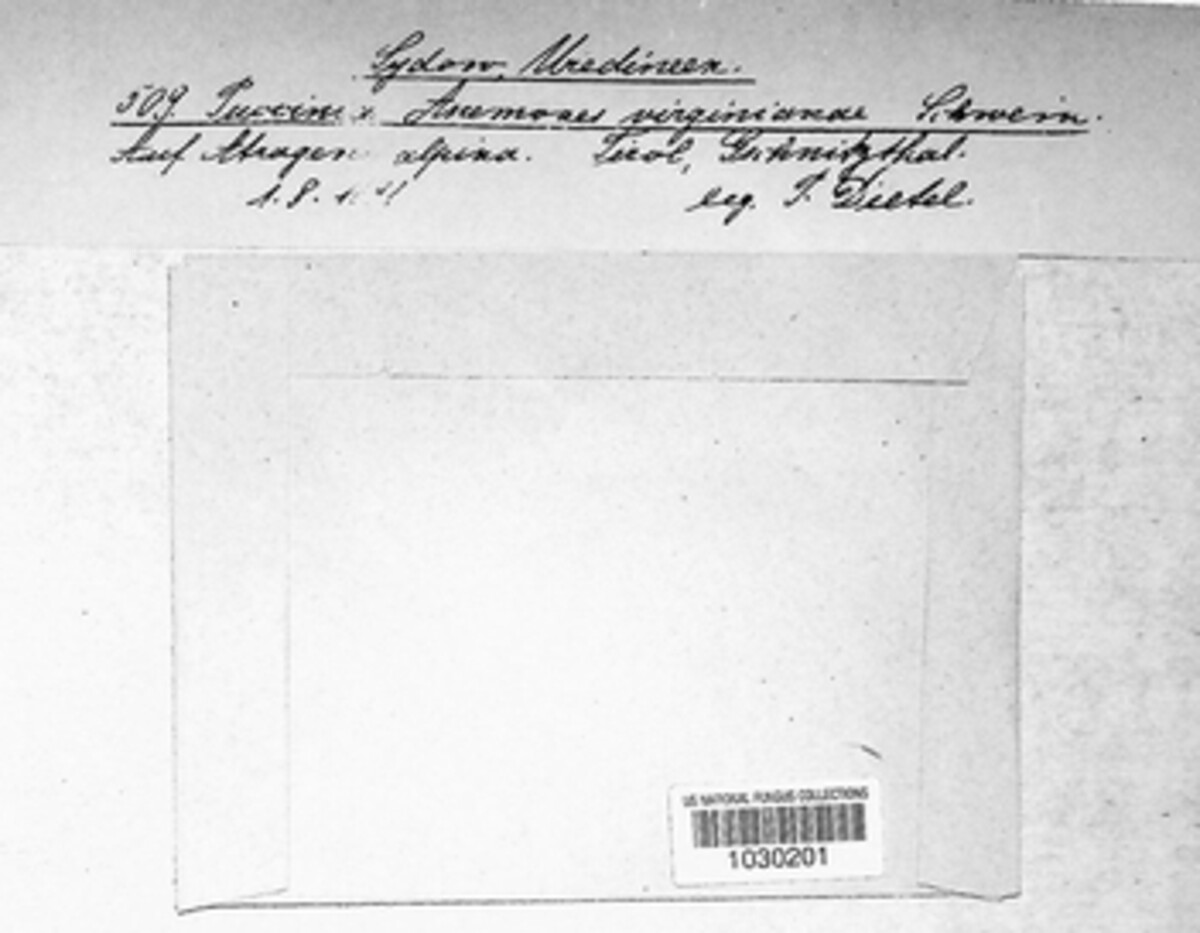 Sydow, Uredineen.
509. Puccinia Anemones virginianae Schwein.
Auf Atragene alpina. Tirol, Gschnitzthal.
1. 8.
leg. P. Dietel.
US NATIONAL FUNGUS COLLECTIONS
1030201